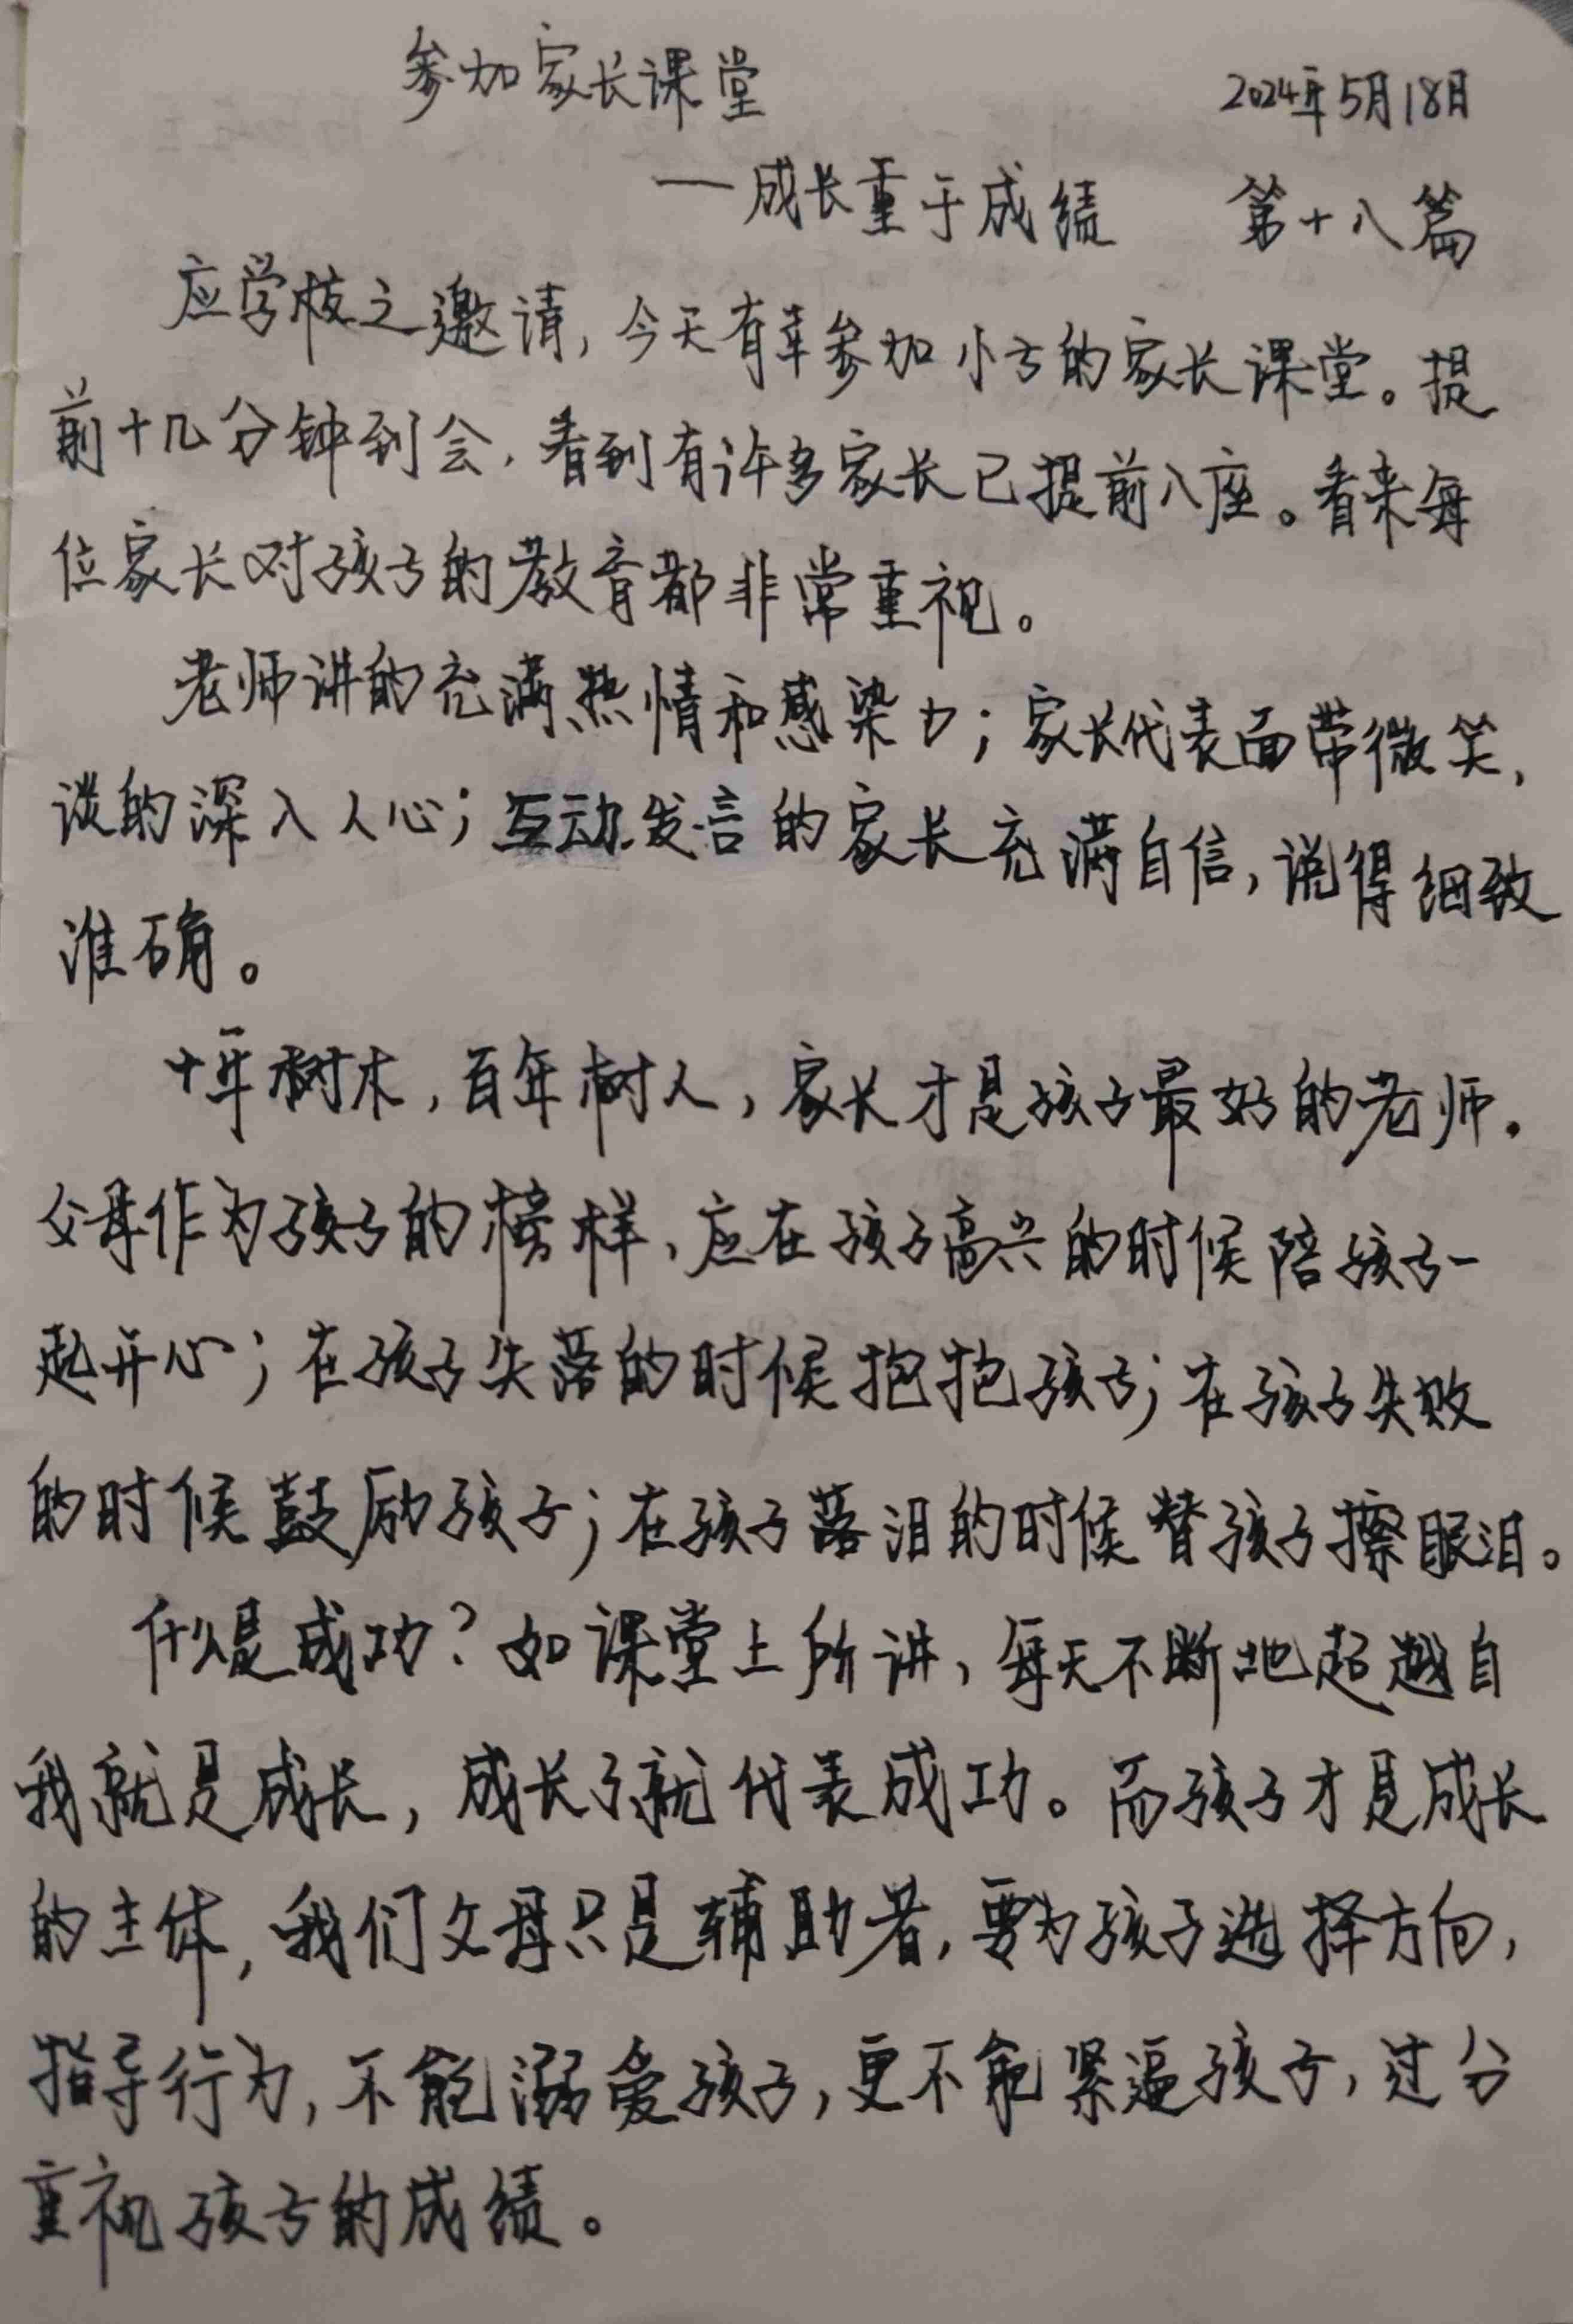 参加家长课堂
2024年5月18日
一成长重于成绩 第十八篇
应学校之邀请,今天有幸参加小方的家长课堂。提
前十几分钟到会,看到有许多家长已提前入座。看来每
位家长对孩子的教育都非常重视。
老师讲的充满热情和感染力;家长代表面带微笑,
谈的深入人心;互动发言的家长充满自信,说得细致
准确。
十年树木,百年树人,家长才是孩子最好的老师。
父母作为孩子的榜样,应在孩子高兴的时候陪孩子一
起开心;在孩子失落的时候抱抱孩子;在孩子失败
的时候鼓励孩子;在孩子落泪的时候替孩子擦眼泪。
什么是成功?如课堂上所讲,每天不断地超越自
我就是成长,成长了就代表成功。而孩子才是成长
的主体,我们父母只是辅助者,要为孩子选择方向,
指导行为,不能溺爱孩子,更不能紧逼孩子,过分
重视孩子的成绩。